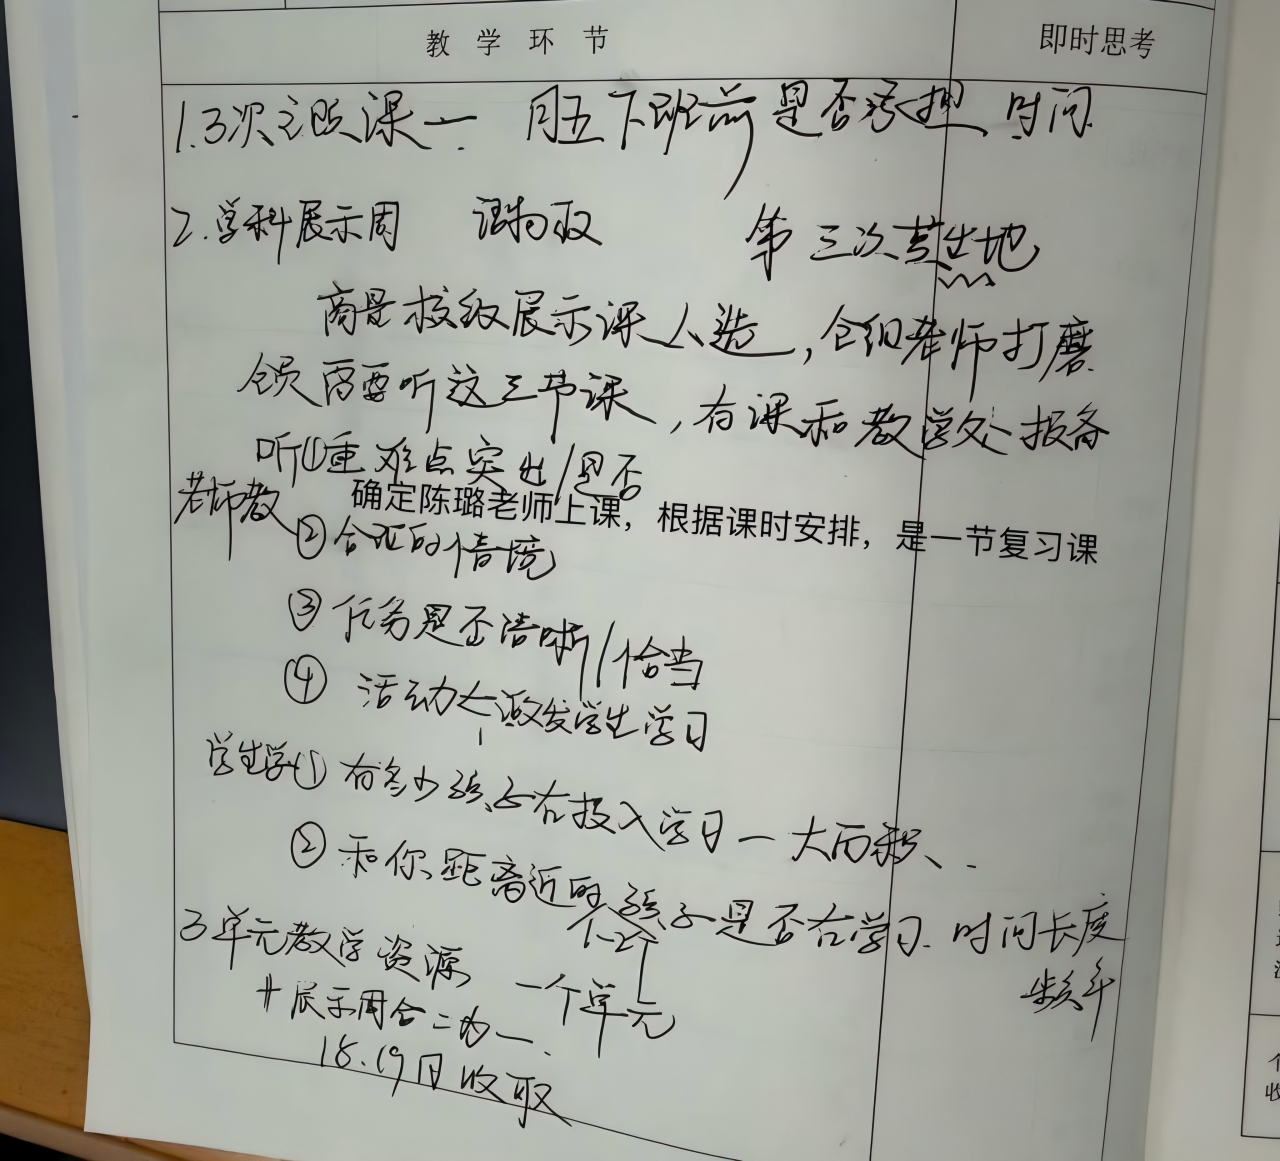 教学环节
即时思考
1.3次主题课一 周五下班前是否承担 时间
2.学科展示周 语物政 第三次基地
商量校级展示课人选，全组老师打磨
全员需要听这三节课，有课和教学处报备
听①重难点突出/是否
确定陈璐老师上课，根据课时安排，是一节复习课
老师教
②合理的情境
③任务是否清晰/恰当
④ 活动 激发学生学习
学生学①有多少孩子在投入学习一大面积、
②和你距离近的孩子是否在学习. 时间长度
1-2个
频率
3单元教学资源 一个单元
＃展示周合二为一.
18.19日收取
个
收